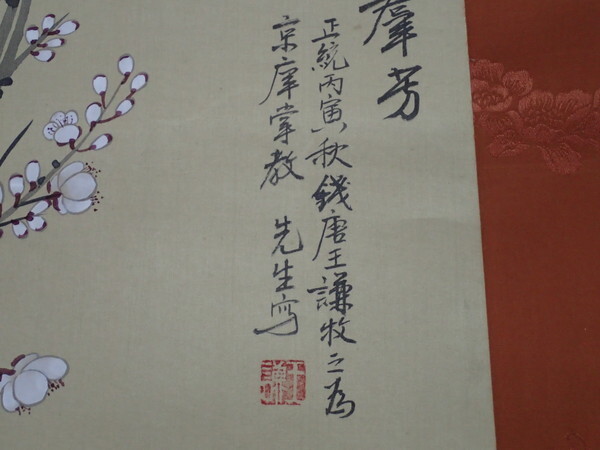 羣芳
正統丙寅秋錢唐王謙牧之為
京庠掌教 先生寫
王謙